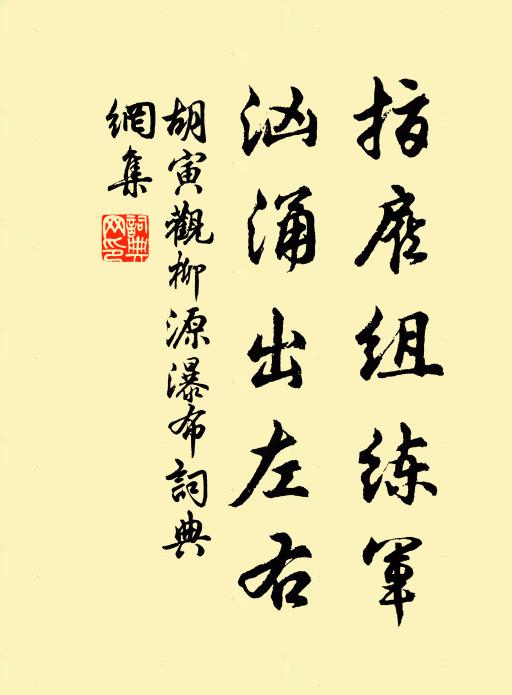 指麾组练軍
汹涌出左右
胡寅觀柳源瀑布詞典
網集
詞典網印